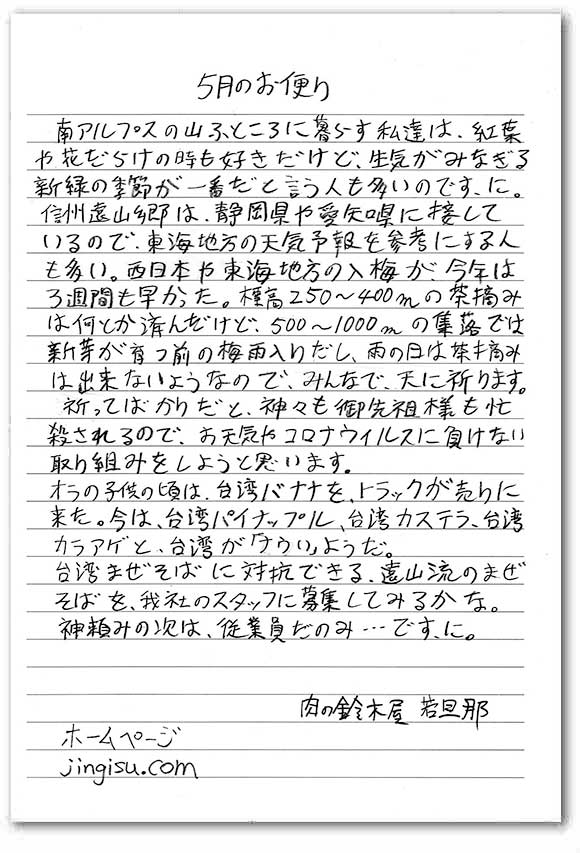 5月のお便り
南アルプスの山ふところに暮らす私達は、紅葉
や花だらけの時も好きだけど、生気がみなぎる
新緑の季節が一番だと言う人も多いのです、に。
信州遠山郷は、静岡県や愛知県に接して
いるので、東海地方の天気予報を参考にする人
も多い。西日本や東海地方の入梅が、今年は
3週間も早かった。標高250〜400mの茶摘み
は何とか済んだけど、500〜1000mの集落では
新芽が育つ前の梅雨入りだし、雨の日は茶摘み
は出来ないようなので、みんなで、天に祈ります。
祈ってばかりだと、神々も御先祖様も忙
殺されるので、お天気やコロナウイルスに負けない
取り組みをしようと思います。
オラの子供の頃は、台湾バナナを、トラックが売りに
来た。今は、台湾パイナップル、台湾カステラ、台湾
カラアゲと、台湾が「アツい」ようだ。
台湾まぜそばに対抗できる、遠山流のまぜ
そばを、我社のスタッフに募集してみるかな。
神頼みの次は、従業員だのみ…です、に。
肉の鈴木屋 若旦那
ホームページ
jingisu.com